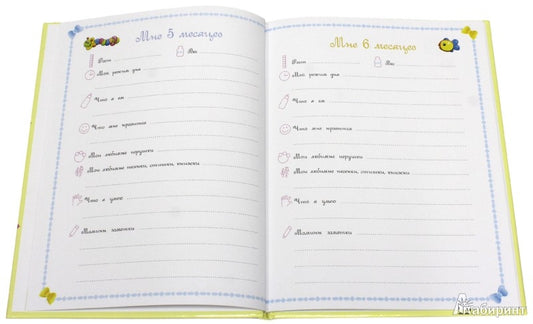 Мне 5 месяцев
Рост
Вес
Мой режим дня
Что я ем
Что мне нравится
Мои любимые игрушки
Мои любимые песенки, стишки, книжки
Что я умею
Мамины заметки
Мне 6 месяцев
Рост
Вес
Мой режим дня
Что я ем
Что мне нравится
Мои любимые игрушки
Мои любимые песенки, стишки, книжки
Что я умею
Мамины заметки
Лабиринт